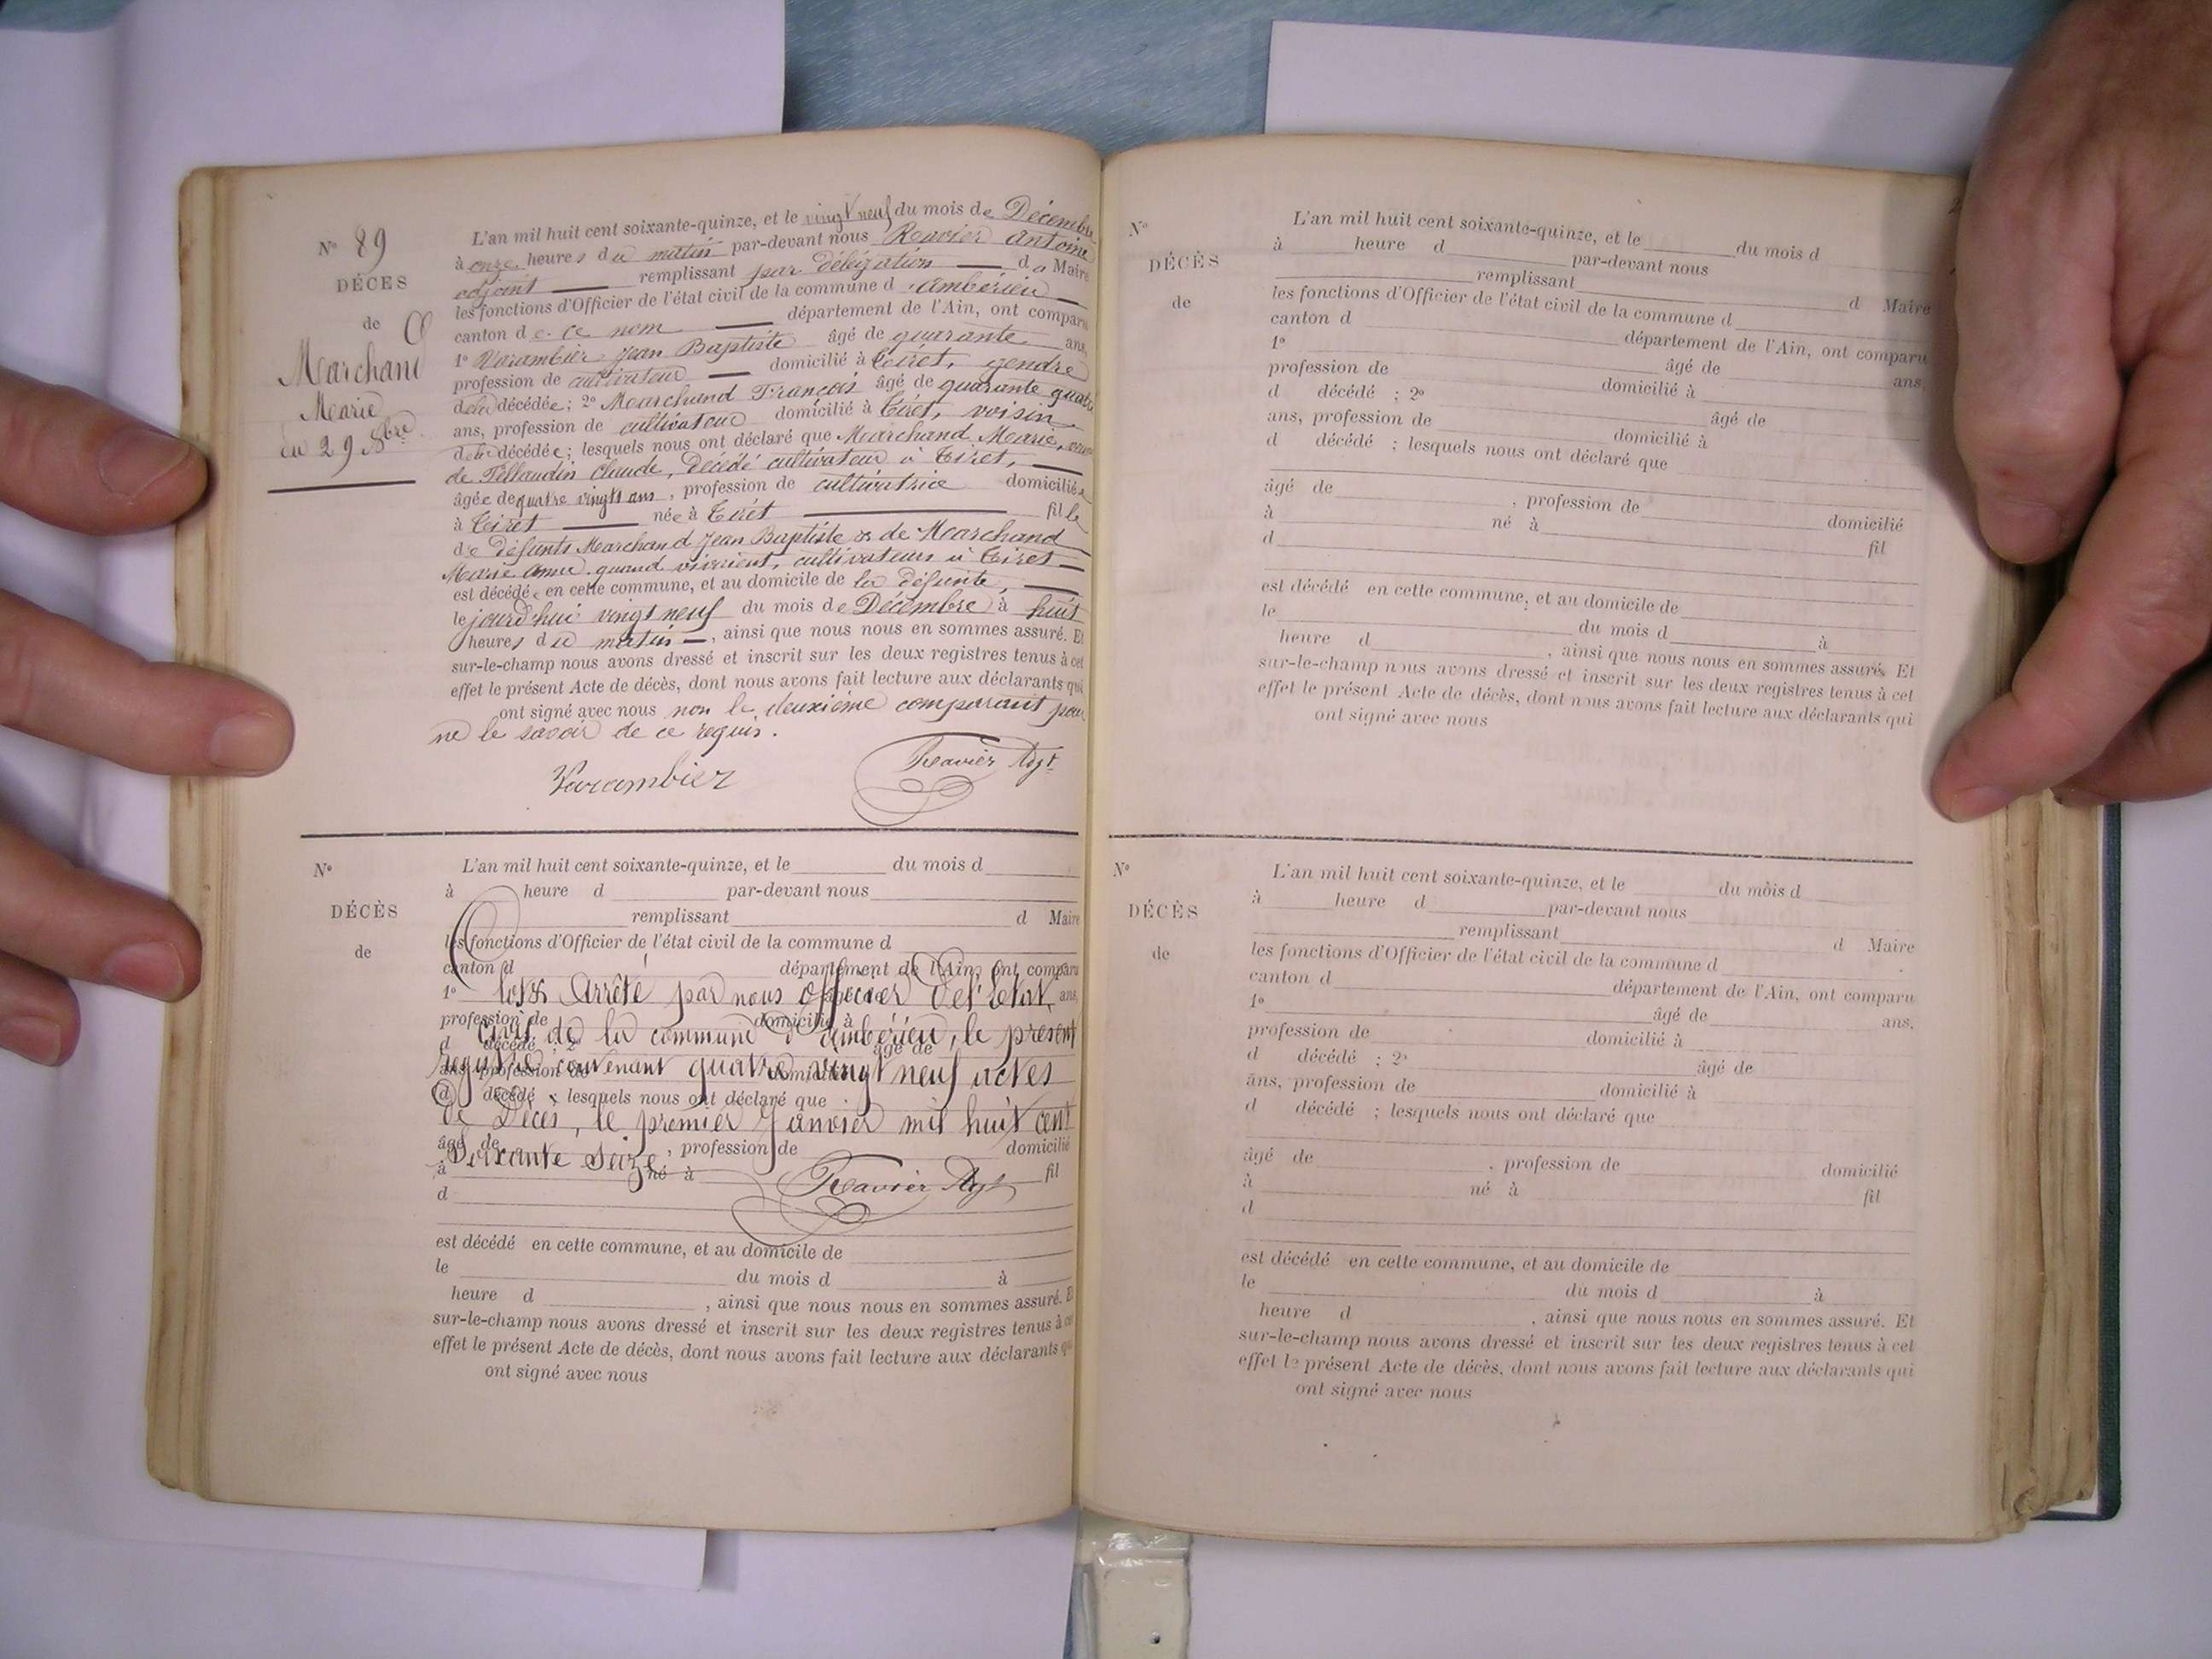 N° 89
DÉCES
de
Marchand
Marie
du 29 Xbre
L'an mil huit cent soixante-quinze, et le vingt neuf du mois de Décembre
à onze heures du matin par-devant nous Ravier Antoine
adjoint remplissant par délégation du Maire
les fonctions d'Officier de l'état civil de la commune d'Ambérieu
canton de ce nom département de l'Ain, ont comparu
1° Varambier Jean Baptiste âgé de quarante ans,
profession de cultivateur domicilié à Tiret, gendre
de la décédée; 2° Marchand François âgé de quarante quatre
ans, profession de cultivateur domicilié à Tiret, voisin
de la décédée; lesquels nous ont déclaré que Marchand Marie, veuve
de Claude, Décédé cultivateur à Tiret,
âgée de quatre vingts ans, profession de cultivatrice domiciliée
à Tiret née à Tiret fille
de défunts Marchand Jean Baptiste & de Marchand
Marie Anne quand vivaient, cultivateurs à Tiret
est décédée en cette commune, et au domicile de la défunte,
le jourd'hui vingt neuf du mois de Décembre à huit
heures du matin, ainsi que nous nous en sommes assuré. Et
sur-le-champ nous avons dressé et inscrit sur les deux registres tenus à cet
effet le présent Acte de décès, dont nous avons fait lecture aux déclarants qui
ont signé avec nous non le deuxième comparant pour
ne le savoir de ce requis.
Varambier Ravier Adjt
N°
DÉCÈS
de
L'an mil huit cent soixante-quinze, et le du mois d
à heure d par-devant nous
remplissant d Maire
les fonctions d'Officier de l'état civil de la commune d
canton d département de l'Ain, ont comparu
1° âgé de ans,
Clos & Arrêté par nous Officier de l'Etat
profession de domicilié à
Civil de la commune d'Ambérieu, le présent
d décédé ; 2° âgé de
registre contenant quatre vingt neuf actes
ans, profession de domicilié à
d décédé ; lesquels nous ont déclaré que
de Décès, le premier Janvier mil huit cent
âgé de , profession de domicilié
Soixante Seize
à né à fil
Ravier Adjt
d
est décédé en cette commune, et au domicile de
le du mois d à
heure d , ainsi que nous nous en sommes assuré. Et
sur-le-champ nous avons dressé et inscrit sur les deux registres tenus à cet
effet le présent Acte de décès, dont nous avons fait lecture aux déclarants qui
ont signé avec nous
N°
DÉCÈS
de
L'an mil huit cent soixante-quinze, et le du mois d
à heure d par-devant nous
remplissant d Maire
les fonctions d'Officier de l'état civil de la commune d
canton d département de l'Ain, ont comparu
1° âgé de ans,
profession de domicilié à
d décédé ; 2° âgé de
ans, profession de domicilié à
d décédé ; lesquels nous ont déclaré que
âgé de , profession de domicilié
à né à fil
d
est décédé en cette commune, et au domicile de
le du mois d à
heure d , ainsi que nous nous en sommes assuré. Et
sur-le-champ nous avons dressé et inscrit sur les deux registres tenus à cet
effet le présent Acte de décès, dont nous avons fait lecture aux déclarants qui
ont signé avec nous
N°
DÉCÈS
de
L'an mil huit cent soixante-quinze, et le du mois d
à heure d par-devant nous
remplissant d Maire
les fonctions d'Officier de l'état civil de la commune d
canton d département de l'Ain, ont comparu
1° âgé de ans,
profession de domicilié à
d décédé ; 2° âgé de
ans, profession de domicilié à
d décédé ; lesquels nous ont déclaré que
âgé de , profession de domicilié
à né à fil
d
est décédé en cette commune, et au domicile de
le du mois d à
heure d , ainsi que nous nous en sommes assuré. Et
sur-le-champ nous avons dressé et inscrit sur les deux registres tenus à cet
effet le présent Acte de décès, dont nous avons fait lecture aux déclarants qui
ont signé avec nous